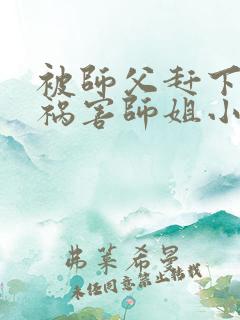 被師父赶下
祸害師姐小
弗莱希曼
未经同意禁止转载